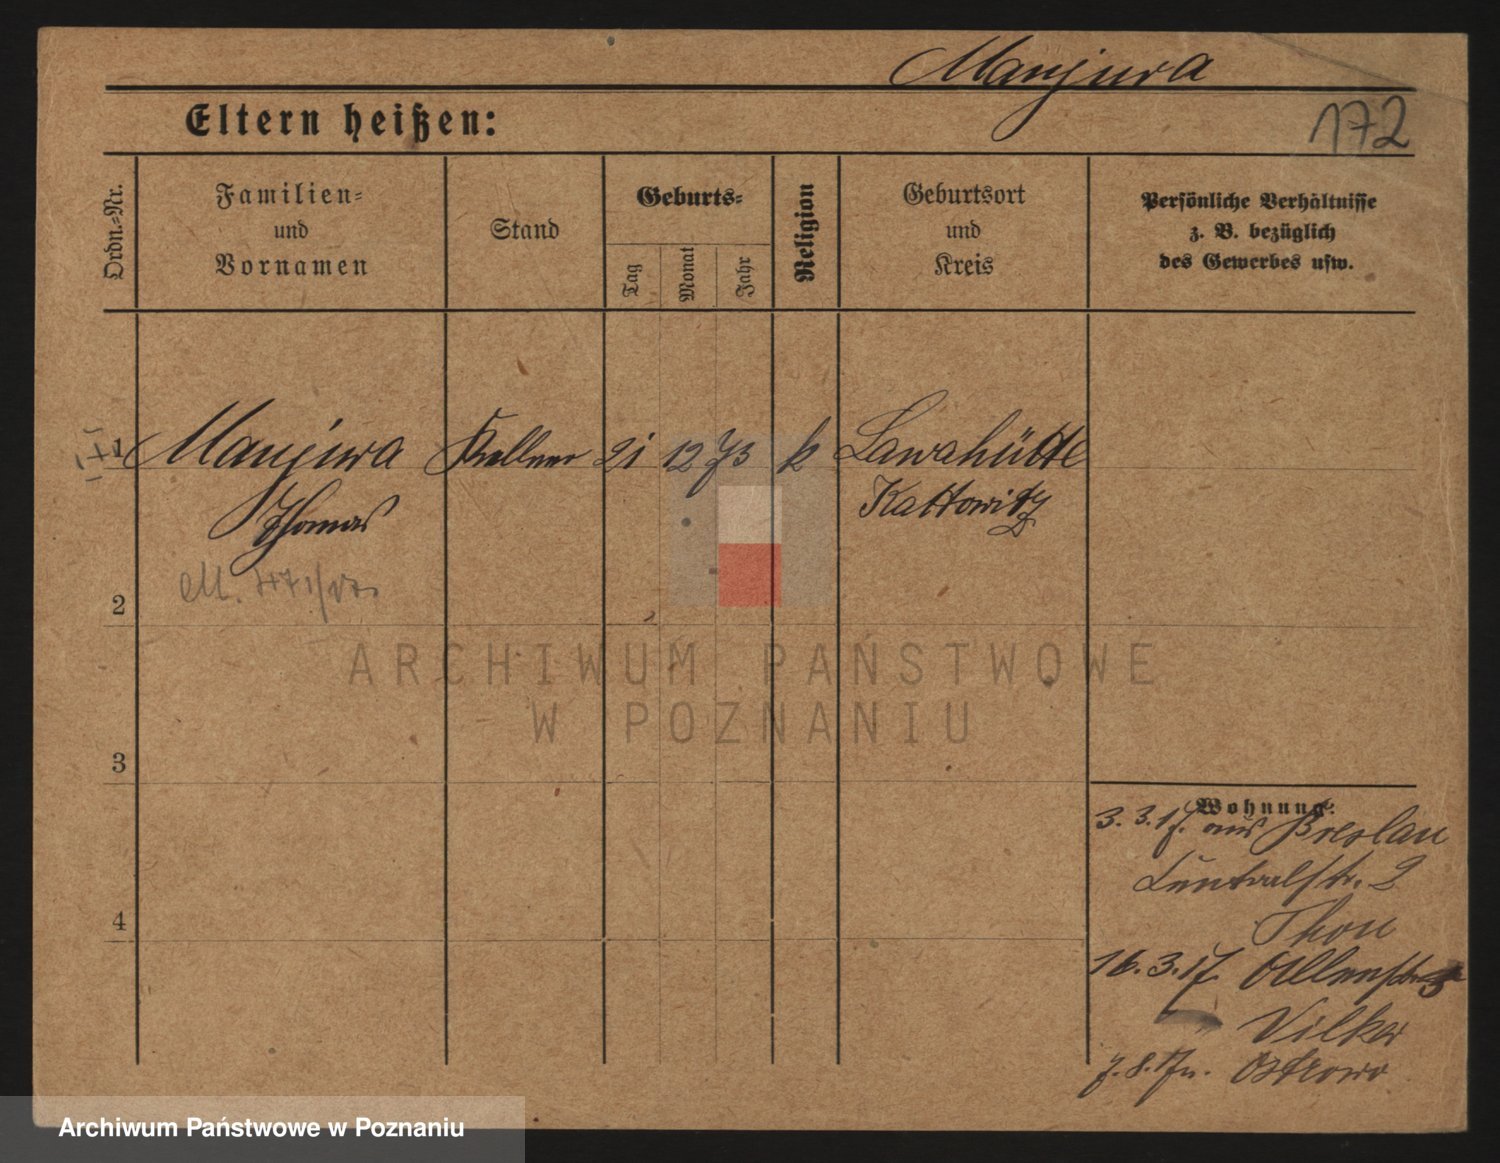 Manjura
172
Eltern heißen:
Ordn.-Nr.
Familien-
und
Vornamen
Stand
Geburts-
Tag
Monat
Jahr
Religion
Geburtsort
und
Kreis
Persönliche Verhältnisse
z. B. bezüglich
des Gewerbes usw.
1 Manjura Kellner 21 12 73 k Laurahütte
Thomas Kattowitz
2
3
4
Wohnung:
3. 3. 17. aus Breslau
Centralstr. 2
Thon
16. 3. 17.
7. 8. 17 n. Ostrowo
ARCHIWUM PAŃSTWOWE
W POZNANIU
Archiwum Państwowe w Poznaniu